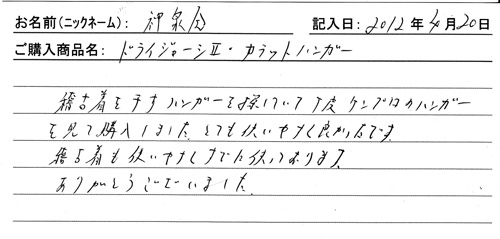 お名前(ニックネーム): 神泉会 記入日: 2012年4月20日
ご購入商品名: ドライジョーシⅡ・カラットハンガー
稽古着を干すハンガーを探していて丁度ケンプロのハンガー
を見て購入しました とても使いやすく良かったです。
稽古着も使いやすく
ありがとうございました